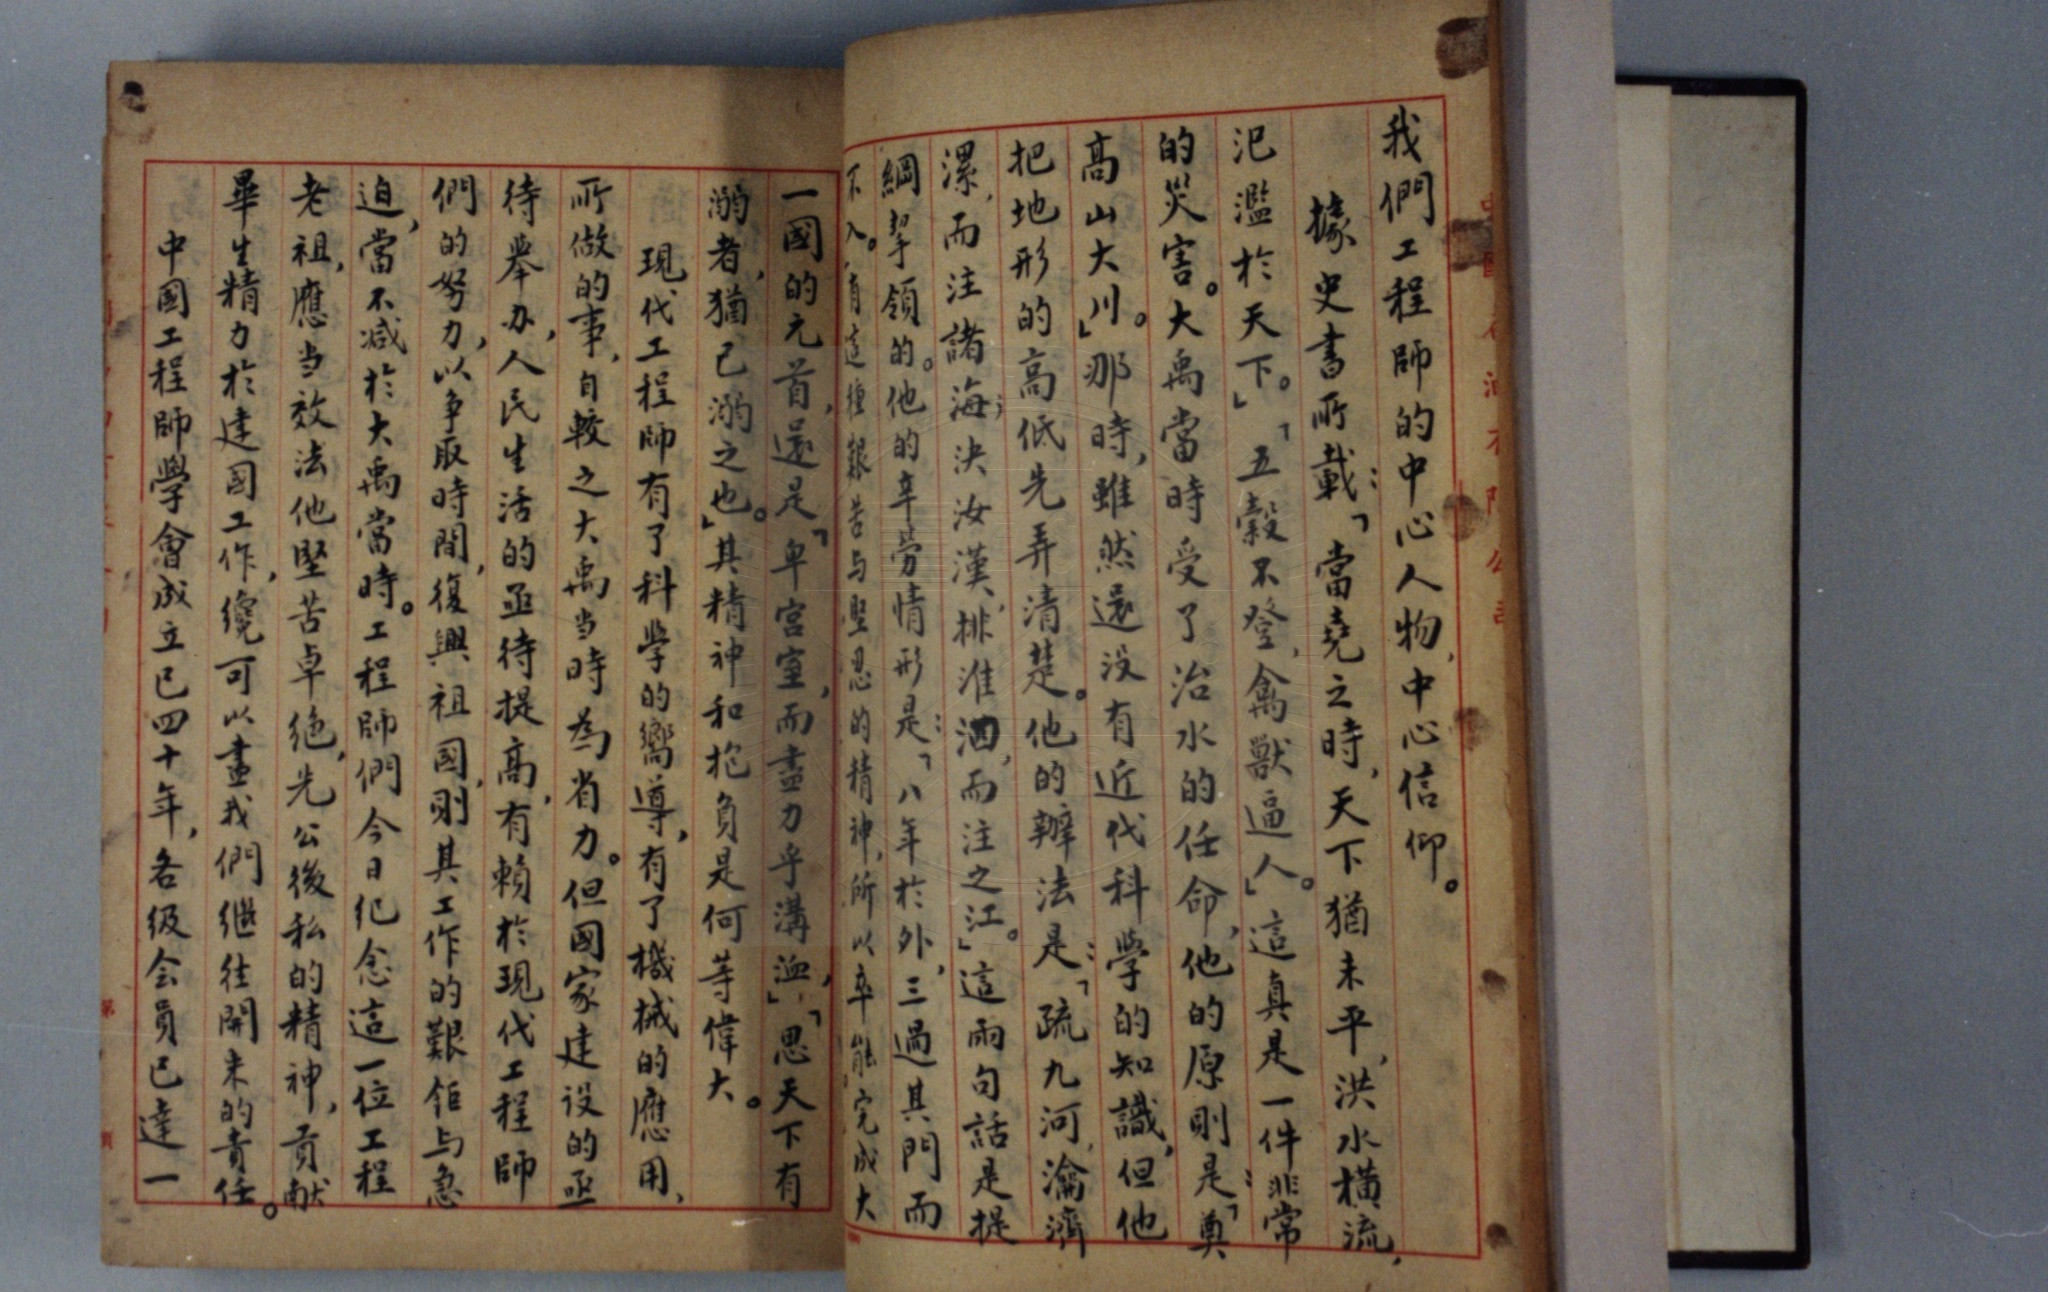 我們工程師的中心人物，中心信仰。
據史書所載：「當堯之時，天下猶未平，洪水橫流，
氾濫於天下。」「五穀不登，禽獸逼人。」這真是一件非常
的災害。大禹當時受了治水的任命，他的原則是：「奠
高山大川。」那時，雖然還沒有近代科學的知識，但他
把地形的高低先弄清楚。他的辦法是：「疏九河，瀹濟
漯，而注諸海；決汝漢，排淮泗，而注之江。」這兩句話是提
綱挈領的。他的辛勞情形是：「八年於外，三過其門而
不入。」有這種艱苦与堅忍的精神，所以卒能完成大
一國的元首，還是「卑宮室，而盡力乎溝洫，」「思天下有
溺者，猶己溺之也。」其精神和抱負是何等偉大。
現代工程師有了科学的嚮導，有了機械的應用，
所做的事，自較之大禹当時為省力。但國家建設的亟
待举办，人民生活的亟待提高，有賴於現代工程師
們的努力，以争取時間，復興祖國，則其工作的艱鉅与急
迫，當不減於大禹當時。工程師們今日纪念這一位工程
老祖，應当效法他堅苦卓絶，先公後私的精神，貢献
畢生精力於建國工作，纔可以盡我們继往開来的責任。
中國工程師學會成立已四十年，各级会員已達一